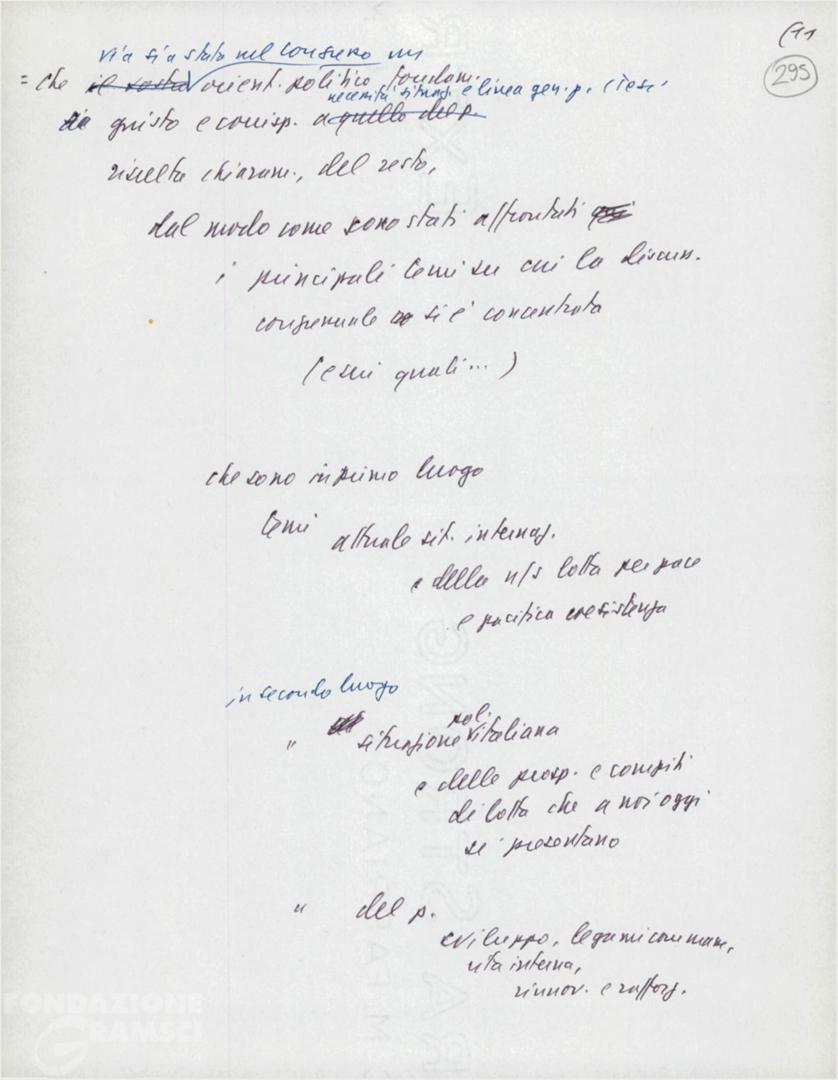 (11
295
vi è sia stato nel congresso un
= che il vostro orient. politico fondam.
necessità situaz. e linea gen. p. (Tesi
giusto e corrisp. a quello del p.
risulta chiaram., del resto,
dal modo come sono stati affrontati
i principali temi su cui la discuss.
congressuale si è concentrata
(e sui quali...)
che sono in primo luogo
temi attuale sit. internaz.
e della n/s lotta per pace
e pacifica coesistenza
in secondo luogo
poli.
" situazione italiana
e delle prosp. e compiti
di lotta che a noi oggi
si presentano
" del p.
sviluppo, legami con masse,
vita interna,
rinnov. e rafforz.
FONDAZIONE
GRAMSCI